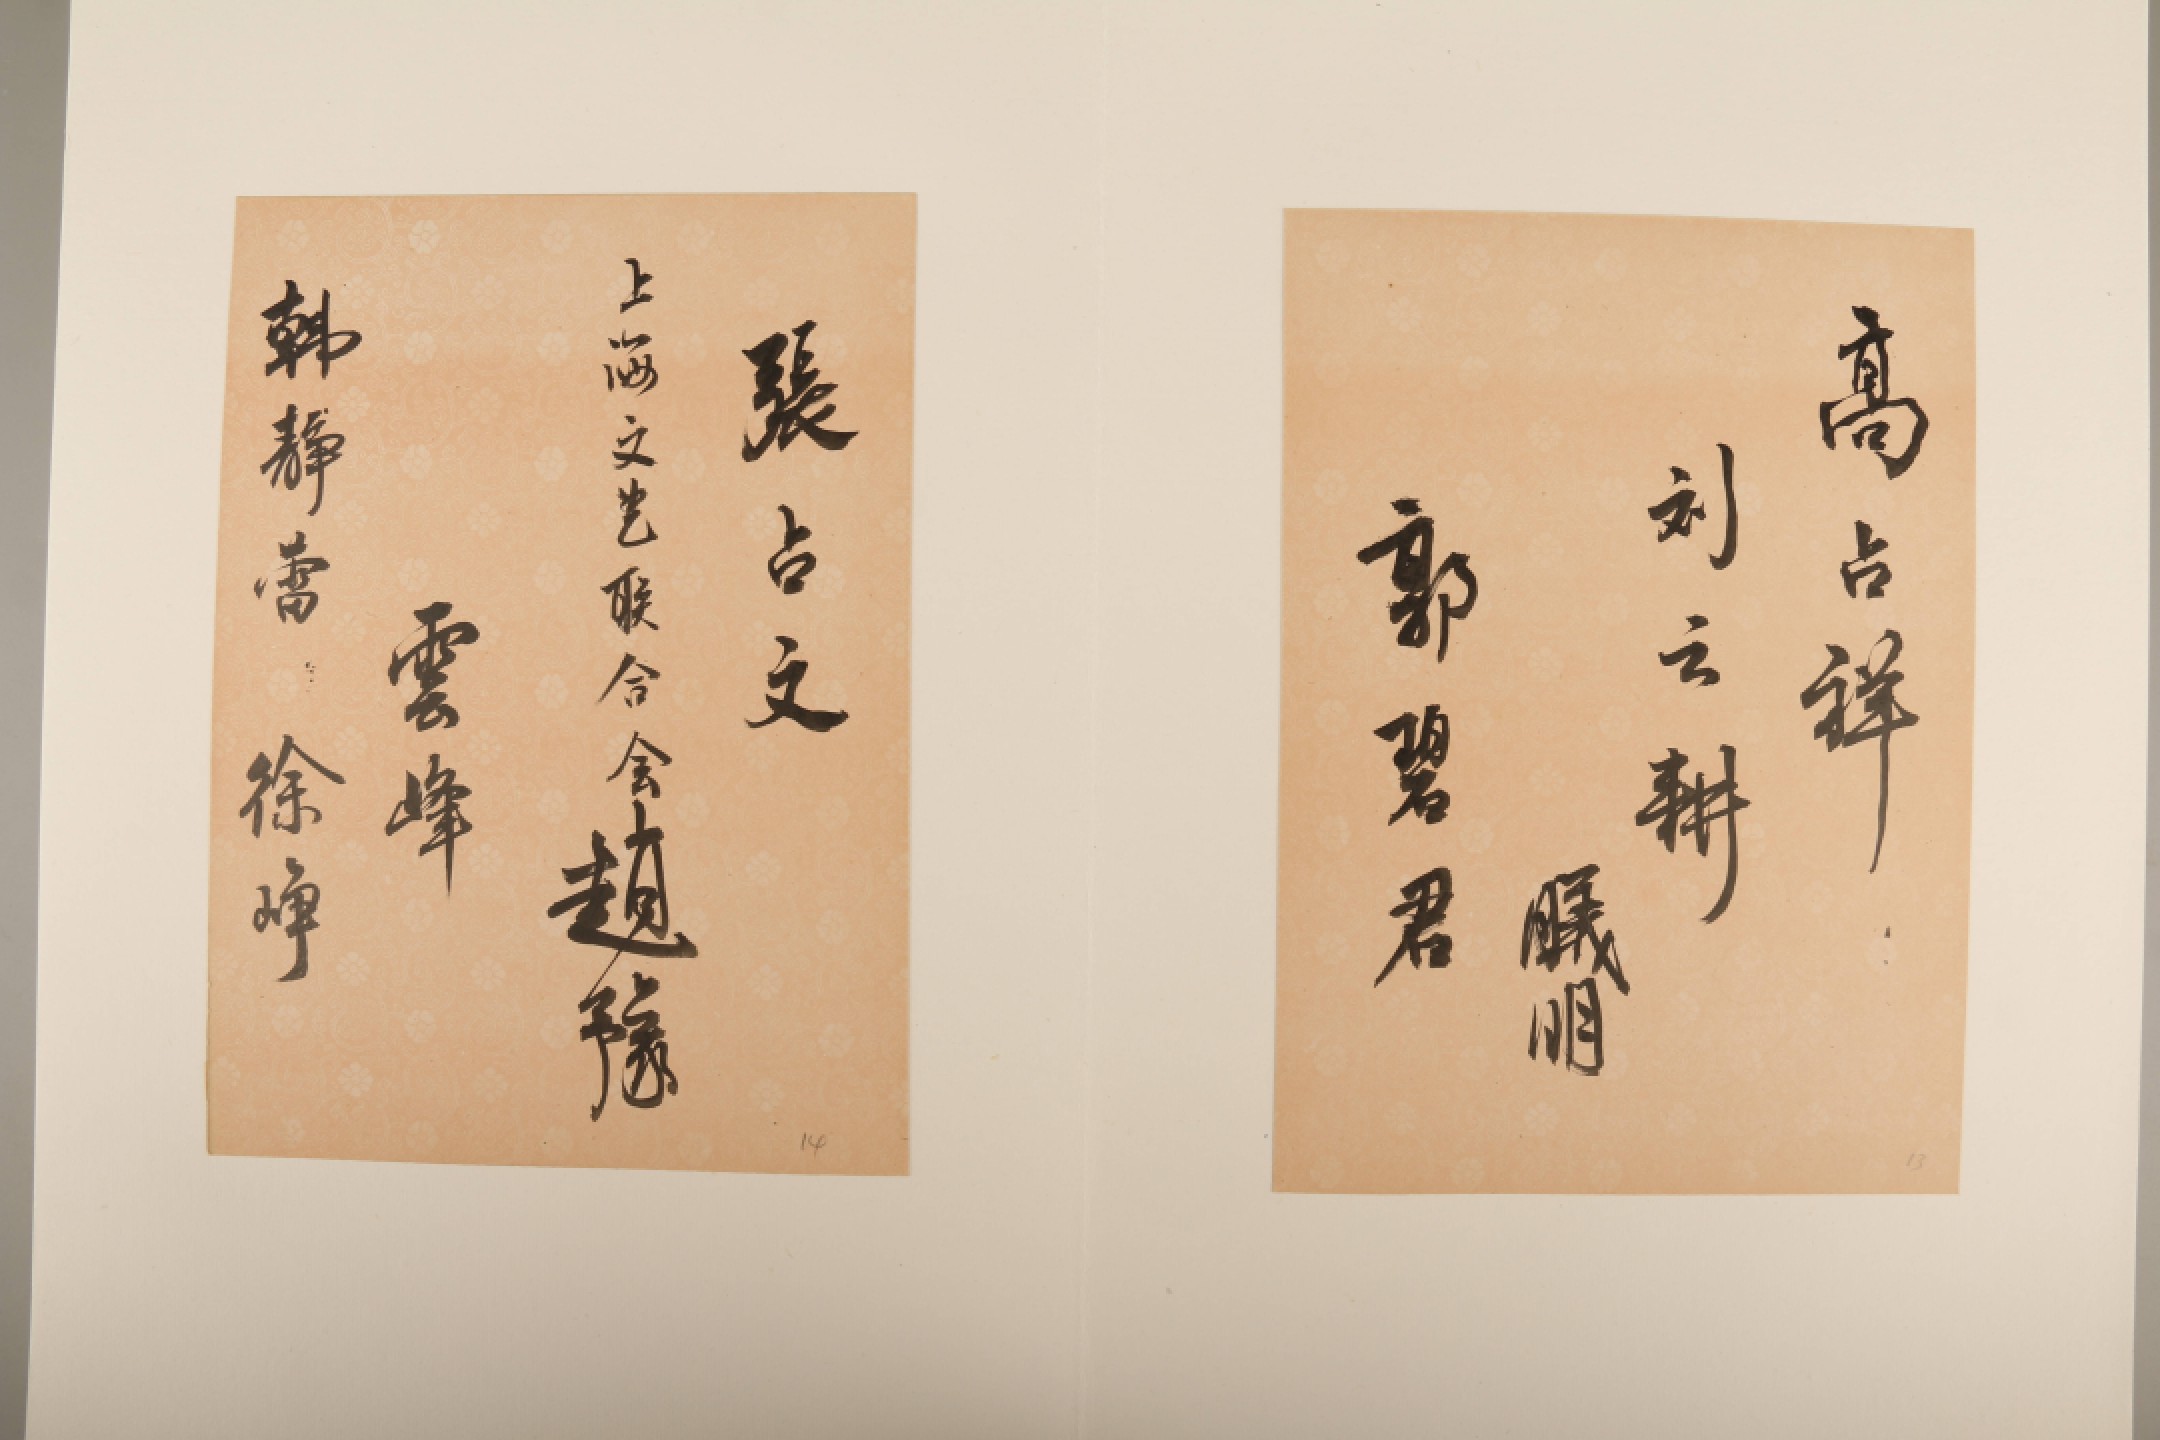 高占祥
刘云耕
曦明
郭碧君
13
張占文
上海文艺联合会趙豫
雲峰
韩靜蕾 徐峥
14